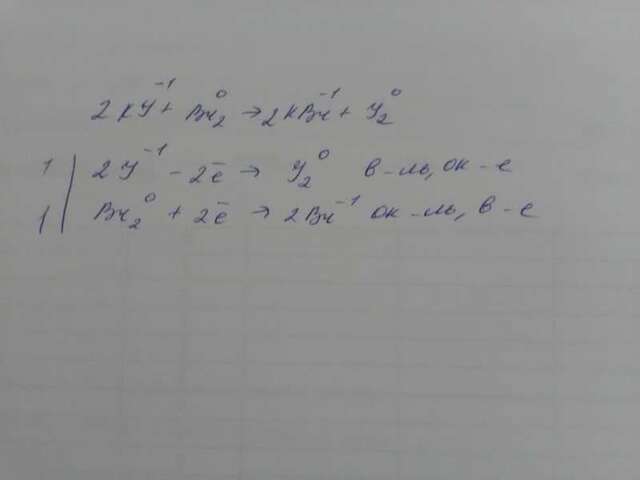 2KJ⁻¹ + Br₂⁰ → 2KBr⁻¹ + J₂⁰
1 | 2J⁻¹ - 2ē → J₂⁰ в-ль, ок-е
1 | Br₂⁰ + 2ē → 2Br⁻¹ ок-ль, в-е